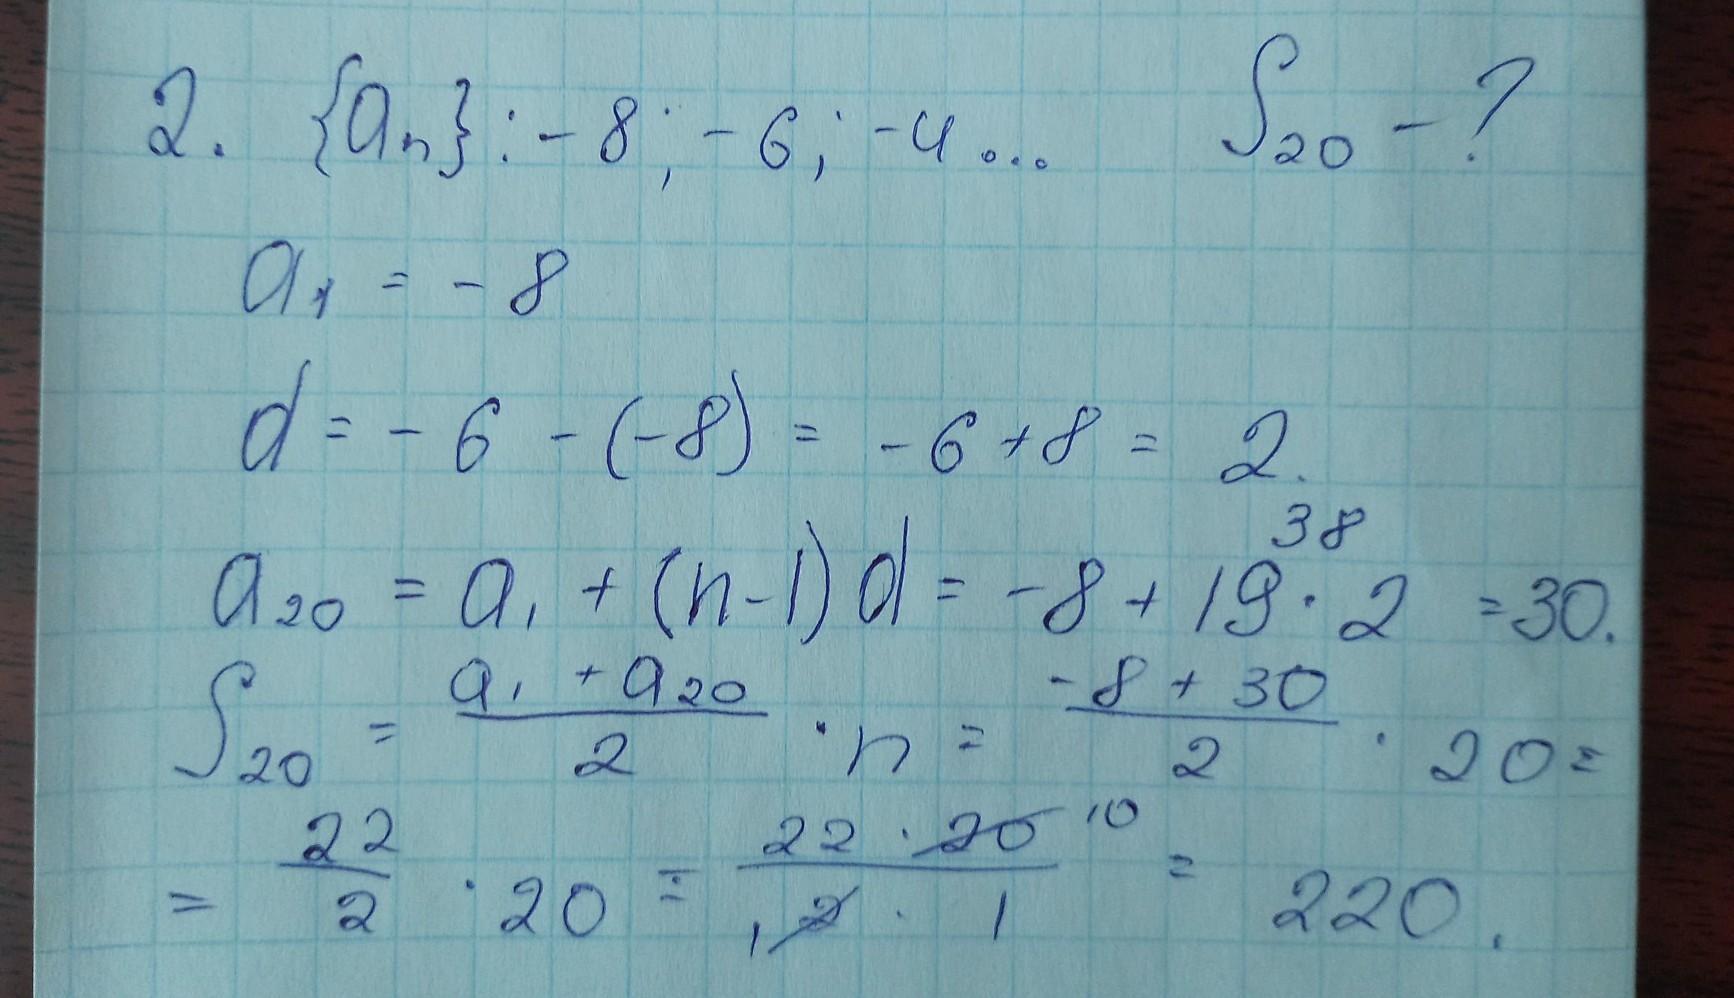 2. {aₙ}: -8; -6; -4... S₂₀ - ?
a₁ = -8
d = -6 - (-8) = -6 + 8 = 2.
38
a₂₀ = a₁ + (n-1)d = -8 + 19 · 2 = 30.
S₂₀ = (a₁ + a₂₀)/2 · n = (-8 + 30)/2 · 20 =
= 22/2 · 20 = (22 · 20 10)/(1 2 · 1) = 220.